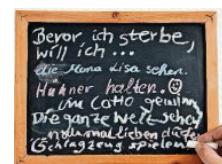 Bevor ich sterbe,
will ich ...
die Mona Lisa sehen.
Hühner halten.
im Lotto gewinn
Die ganze Welt sehen
nochmal lieben dürfen
Schlagzeug spielen